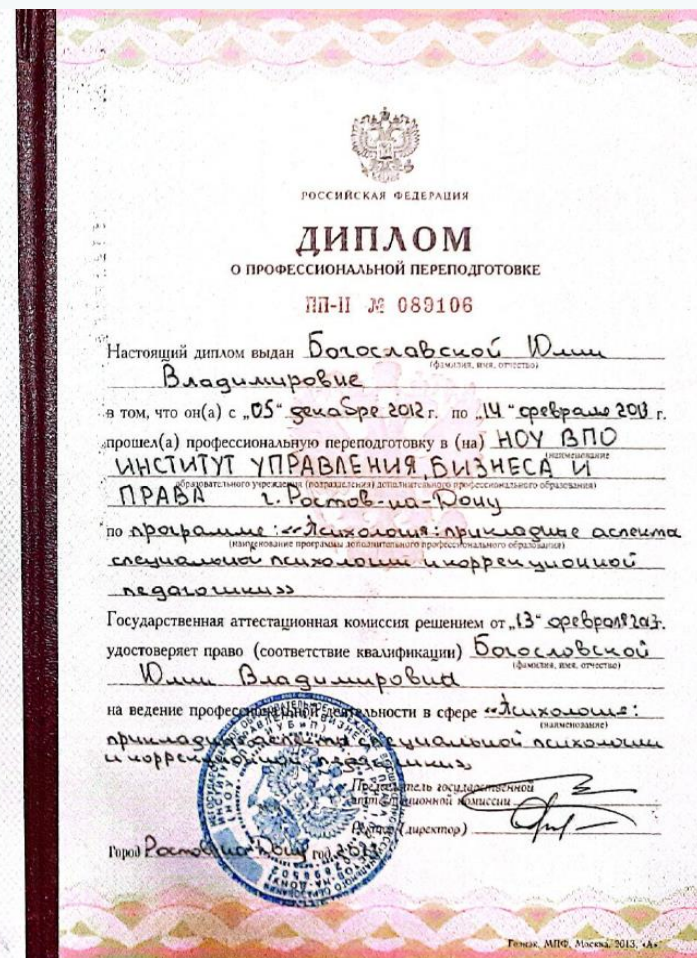 РОССИЙСКАЯ ФЕДЕРАЦИЯ
ДИПЛОМ
О ПРОФЕССИОНАЛЬНОЙ ПЕРЕПОДГОТОВКЕ
ПП-II № 089106
Настоящий диплом выдан Богославской Юлии
(фамилия, имя, отчество)
Владимировне
в том, что он(а) с „05“ декабре 2012 г. по „14“ февраля 2013 г.
прошел(а) профессиональную переподготовку в (на) НОУ ВПО
(наименование
ИНСТИТУТ УПРАВЛЕНИЯ, БИЗНЕСА И
образовательного учреждения (подразделения) дополнительного профессионального образования)
ПРАВА г. Ростов-на-Дону
по программе: «Психология: прикладные аспекты
(наименование программы дополнительного профессионального образования)
специальной психологии и коррекционной
педагогики»
Государственная аттестационная комиссия решением от „13“ февраля
удостоверяет право (соответствие квалификации) Богословской
(фамилия, имя, отчество)
Юлии Владимировны
на ведение профессиональной деятельности в сфере «Психология:
(наименование)
прикладные аспекты специальной психологии
и коррекционной педагогики»
Председатель государственной
аттестационной комиссии
Ректор (директор)
Город Ростов-на-Дону год 2013
Гознак, МПФ, Москва, 2013, «А».